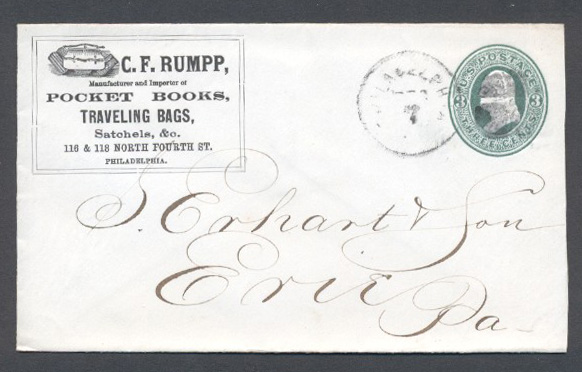 C. F. RUMPP,
Manufacturer and Importer of
POCKET BOOKS,
TRAVELING BAGS,
Satchels, &c.
116 & 118 NORTH FOURTH ST.
PHILADELPHIA.
U.S. POSTAGE
3 3
THREE CENTS
S. Erhart & Son
Erie
Pa